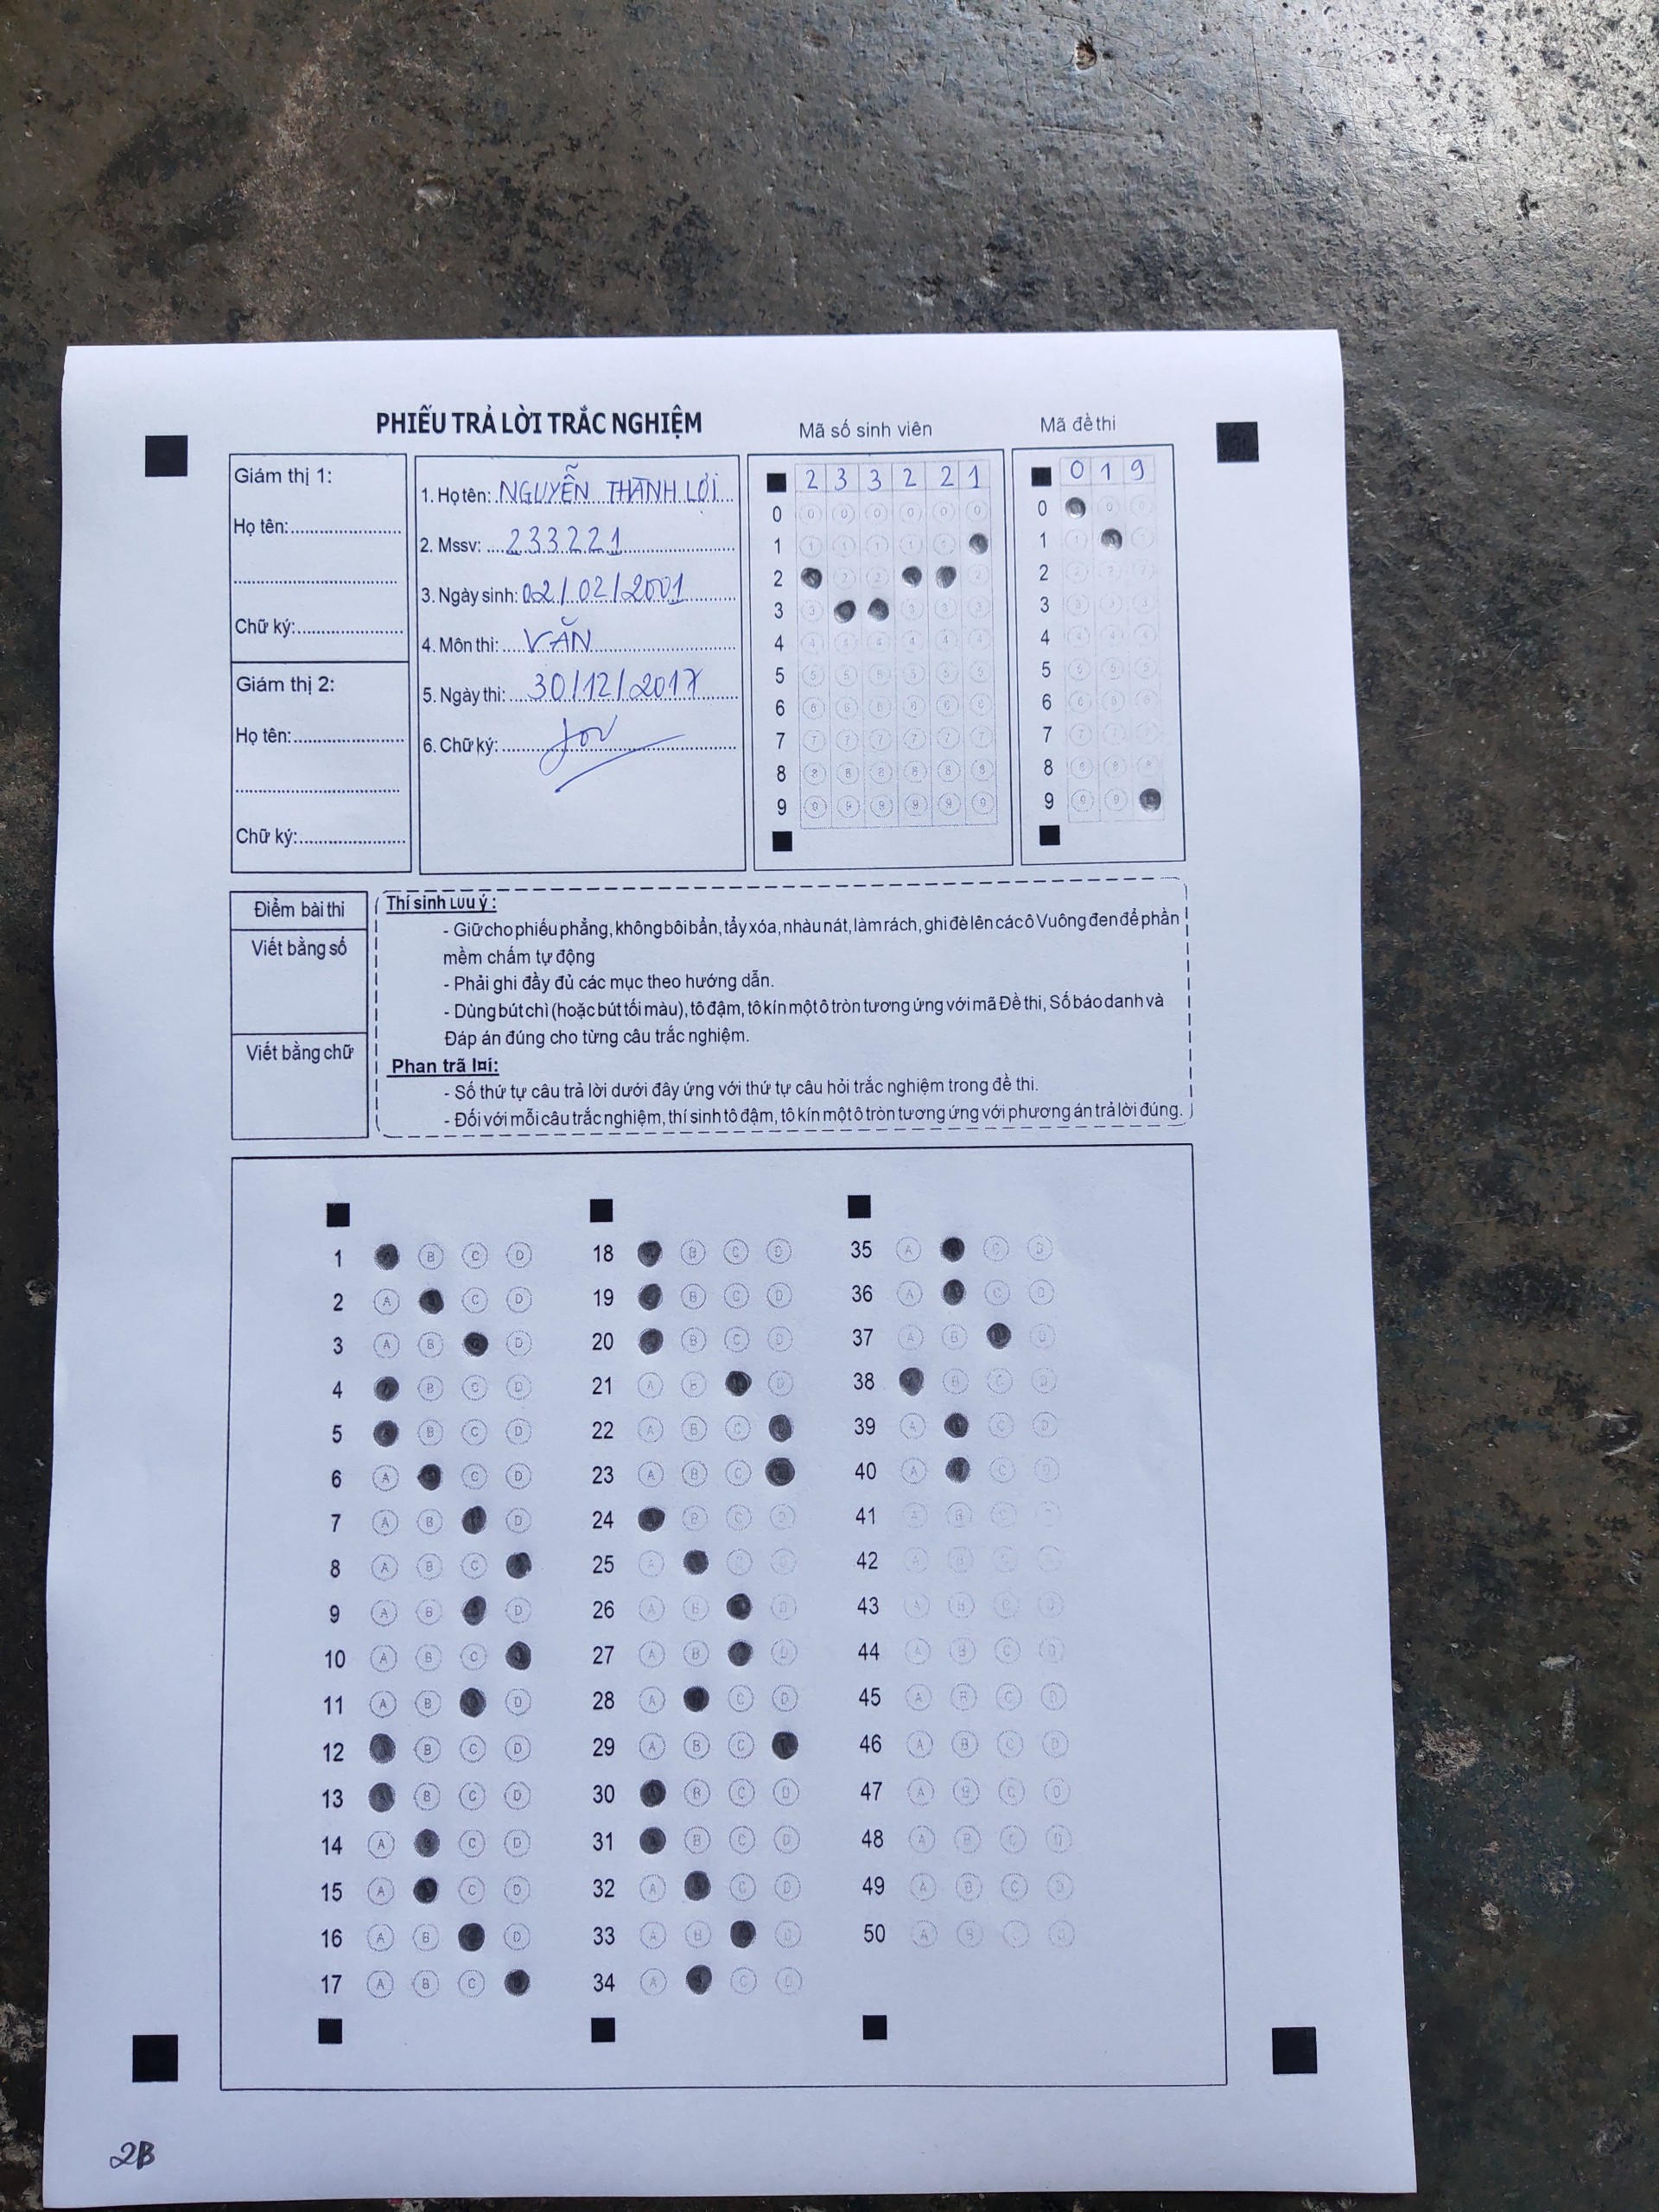 PHIẾU TRẢ LỜI TRẮC NGHIỆM
Mã số sinh viên
Mã đề thi
Giám thị 1:
Họ tên:
Chữ ký:
Giám thị 2:
Họ tên:
Chữ ký:
1. Họ tên: NGUYỄN THÀNH LỢI
2. Mssv: 233221
3. Ngày sinh: 02/02/2001
4. Môn thi: VĂN
5. Ngày thi: 30/12/2017
6. Chữ ký:
2 3 3 2 2 1
0 0 0 0 0 0 0
1 1 1 1 1 1
2 2 2 2
3 3 3 3 3
4 4 4 4 4 4 4
5 5 5 5 5 5 5
6 6 6 6 6 6 6
7 7 7 7 7 7 7
8 8 8 8 8 8 8
9 9 9 9 9 9 9
0 1 9
0 0 0
1 1 1
2 2 2 2
3 3 3 3
4 4 4 4
5 5 5 5
6 6 6 6
7 7 7 7
8 8 8 8
9 9 9
Điểm bài thi
Viết bằng số
Viết bằng chữ
Thí sinh Lưu ý :
- Giữ cho phiếu phẳng, không bôi bẩn, tẩy xóa, nhàu nát, làm rách, ghi đè lên các ô Vuông đen để phần
mềm chấm tự động
- Phải ghi đầy đủ các mục theo hướng dẫn.
- Dùng bút chì (hoặc bút tối màu), tô đậm, tô kín một ô tròn tương ứng với mã Đề thi, Số báo danh và
Đáp án đúng cho từng câu trắc nghiệm.
Phan trã l¤i:
- Số thứ tự câu trả lời dưới đây ứng với thứ tự câu hỏi trắc nghiệm trong đề thi.
- Đối với mỗi câu trắc nghiệm, thí sinh tô đậm, tô kín một ô tròn tương ứng với phương án trả lời đúng.
1 B C D
2 A C D
3 A B D
4 B C D
5 B C D
6 A C D
7 A B D
8 A B C
9 A B D
10 A B C
11 A B D
12 B C D
13 B C D
14 A B C D
15 A C D
16 A B D
17 A B C
18 B C D
19 B C D
20 B C D
21 A B D
22 A B C
23 A B C
24 B C D
25 A C D
26 A B D
27 A B D
28 A C D
29 A B C
30 B C D
31 B C D
32 A C D
33 A B D
34 A C D
35 A C D
36 A C D
37 A B D
38 B C D
39 A C D
40 A C D
41 A B C D
42 A B C D
43 A B C D
44 A B C D
45 A B C D
46 A B C D
47 A B C D
48 A B C D
49 A B C D
50 A B C D
2B